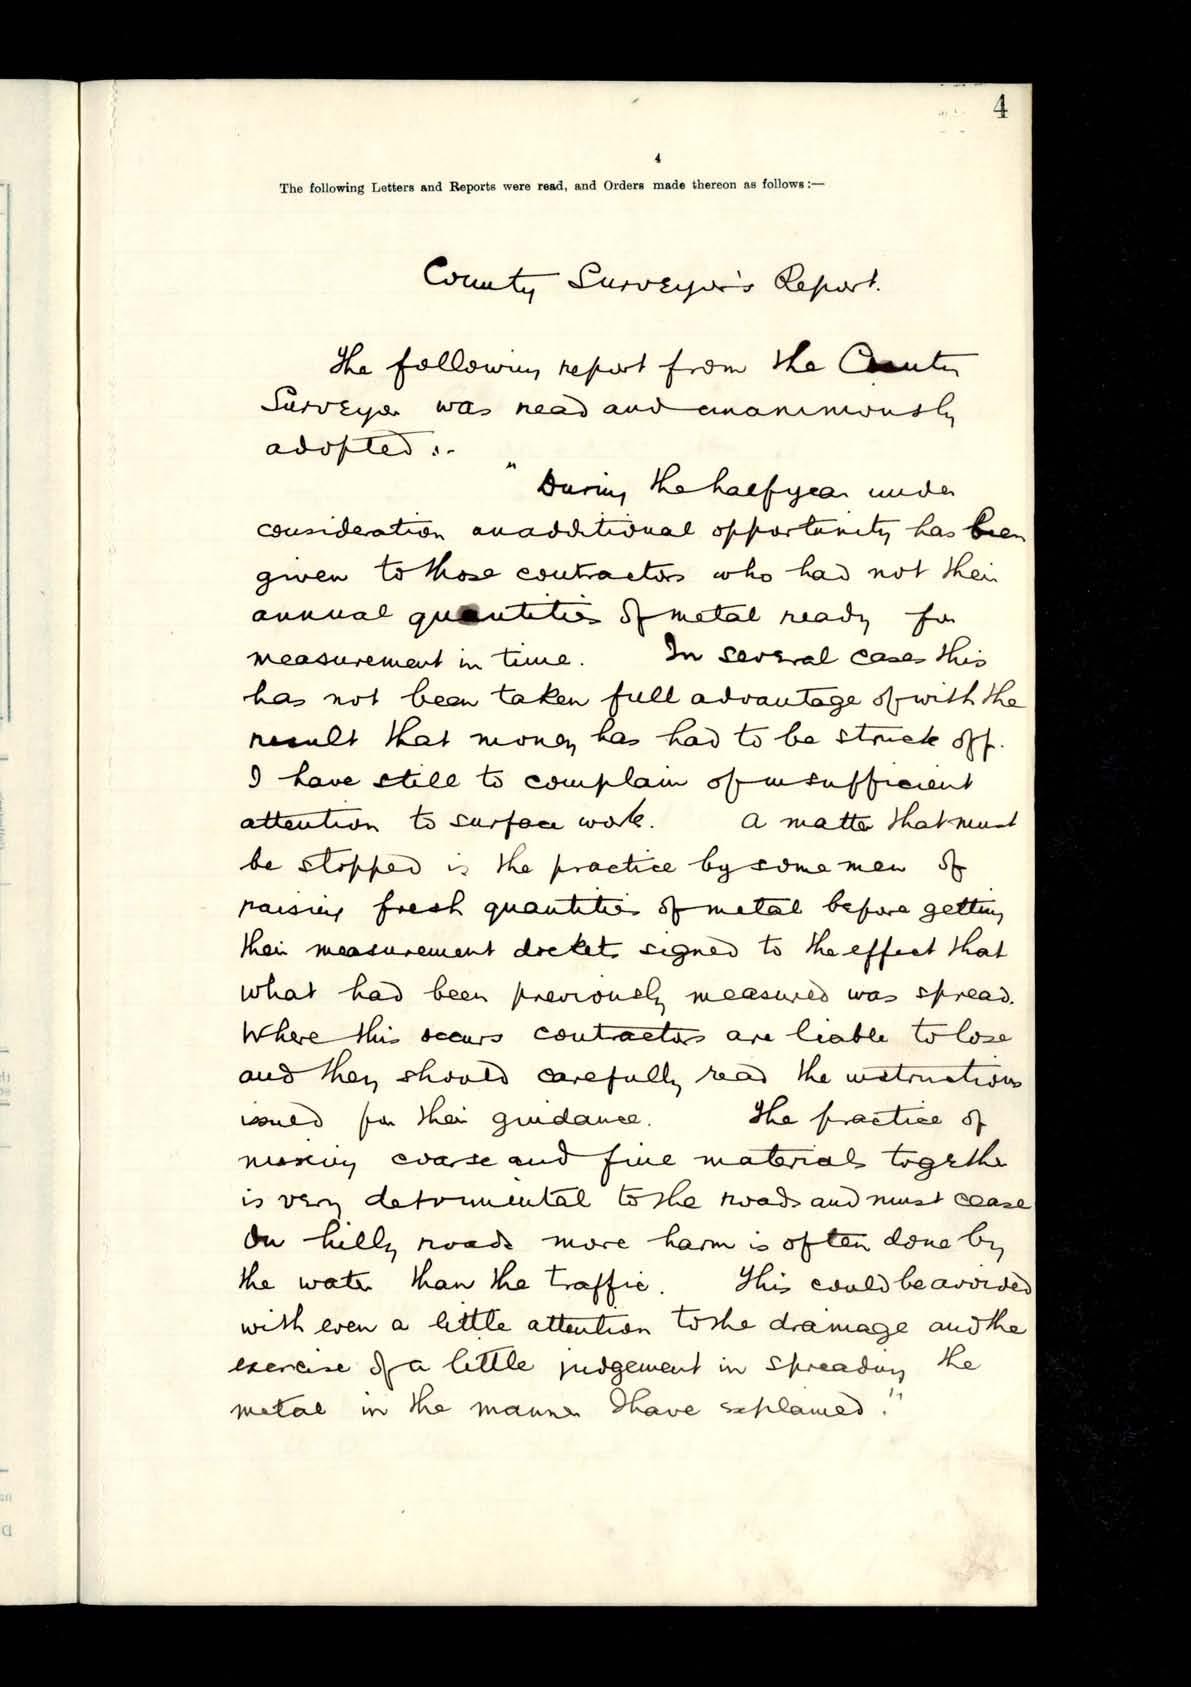 4
4
The following Letters and Reports were read, and Orders made thereon as follows:—
County Surveyor's Report.
The following report from the County
Surveyor was read and unanimously
adopted :-
"During the half year under
consideration an additional opportunity has been
given to those contractors who had not their
annual quantities of metal ready for
measurement in time. In several cases this
has not been taken full advantage of with the
result that money has had to be struck off.
I have still to complain of insufficient
attention to surface work. A matter that must
be stopped is the practice by some men of
raising fresh quantities of metal before getting
their measurement dockets signed to the effect that
what had been previously measured was spread.
Where this occurs contractors are liable to lose
and they should carefully read the instructions
issued for their guidance. The practice of
mixing coarse and fine materials together
is very detrimental to the roads and must cease
On hilly roads more harm is often done by
the water than the traffic. This could be avoided
with even a little attention to the drainage and the
exercise of a little judgement in spreading the
metal in the manner I have explained."